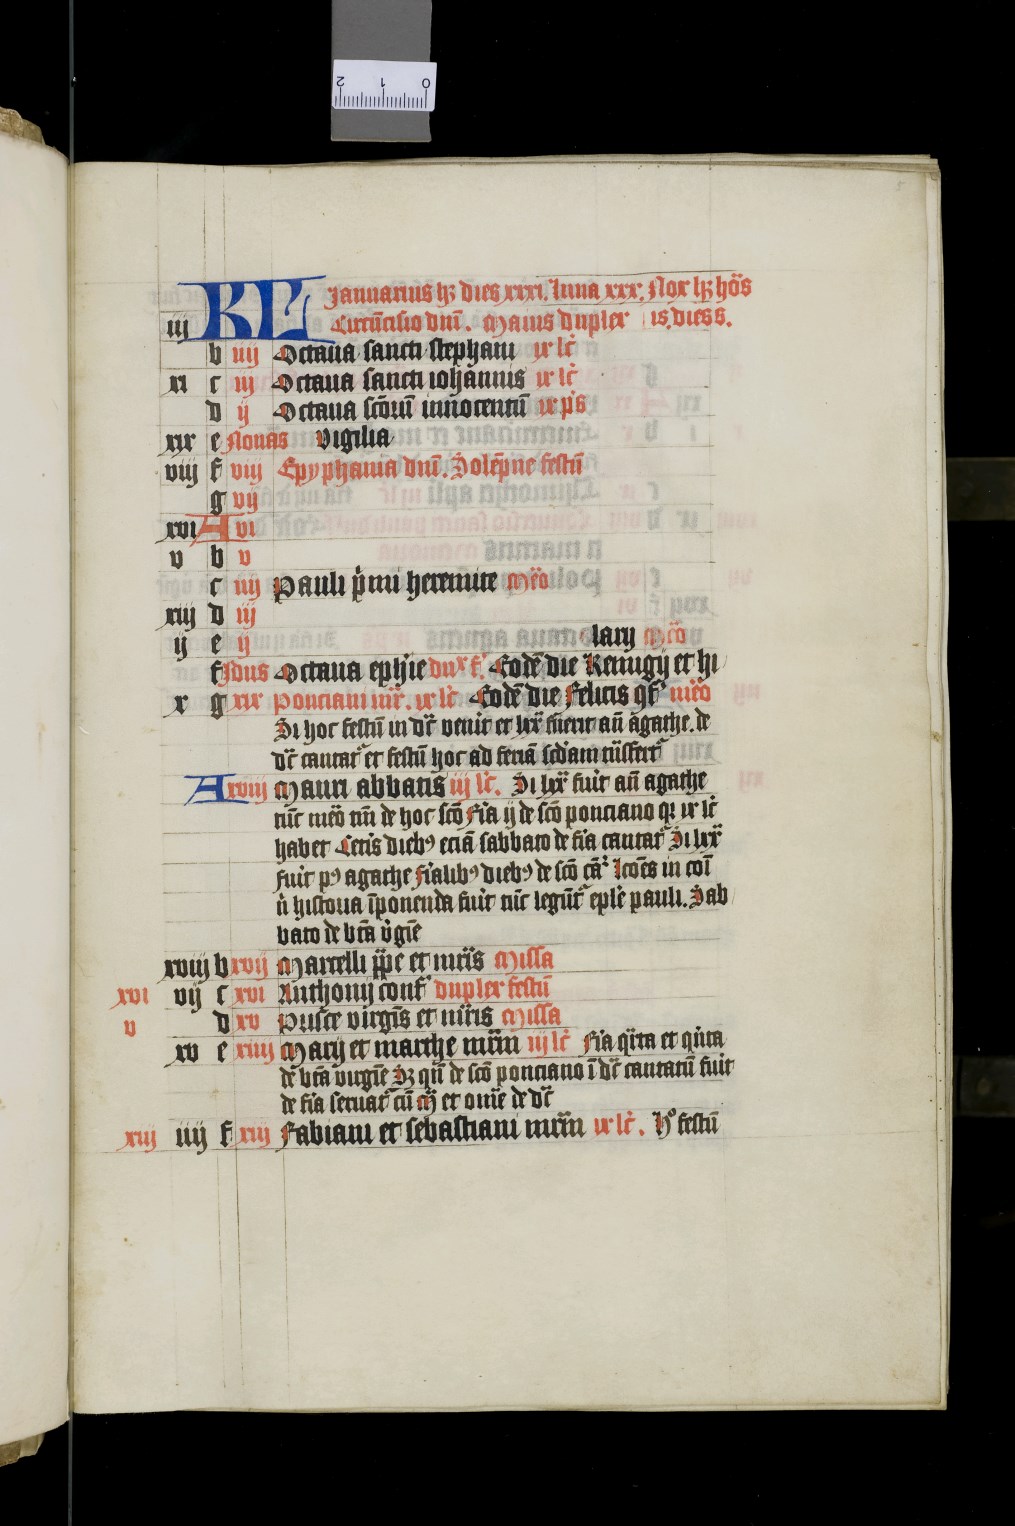 KL Januarius hꝫ dies xxxi. luna xxx. Nox hꝫ hoͬs
iij Circūcisio dnī. Maius duplex is. dies s.
b iiij Octaua sancti stephani ix lc̄
xi c iij Octaua sancti iohānnis ix lc̄
d ij Octaua sc̄oꝝ innocentū ix ps
xix e Nonas vigilia
viij f viij Epyphania dnī. Solēpne festū
g vij
xvi A vi
v b v
c iiij Pauli p̄mi heremite meo
xiij d iij
ij e ij larij meo
f Idus Octaua ephie dux f. Eodē die Remigij et hi
x g xix Ponciani mr̄. ix lc̄ Eodē die Felicis qf meo
Si hoc festū in dc̄ venit et lxx fuerit an̄ agathe. de
dc̄ cantat et festū hoc ad feriā scdam tn̄sfert
A xviij Mauri abbatis iij lc̄. Si lxx fuit an̄ agathe
nūc meo nūi de hoc sc̄o Fia ij de sc̄o ponciano qꝫ ix lc̄
habet Cetis diebꝰ eciā sabbato de fia cantat Si lxx
fuit pꝰ agathe Fialibꝰ diebꝰ de sc̄o cā Icoēs in coī
n̄ historia īponenda fuit nūc legūt eplē pauli. Sab
bato de bt̄a v̄gīe
xviij b xvij Marcelli pp̄e et mr̄is Missa
xvi vij c xvi Anthonij conf duplex festū
v d xv Prisce virgīs et mr̄is Missa
xv e xiiij Marij et marthe mr̄m iij lc̄ Fia qr̄ta et qn̄ta
de bt̄a virgīe Sꝫ qn̄ de sc̄o ponciano ī dc̄ cantatū fuit
de fia seruat cū m̄ et om̄e de dc̄
xiij iiij f xiij Fabiani et sebastiani mr̄m ix lc̄. Hᵒ festū